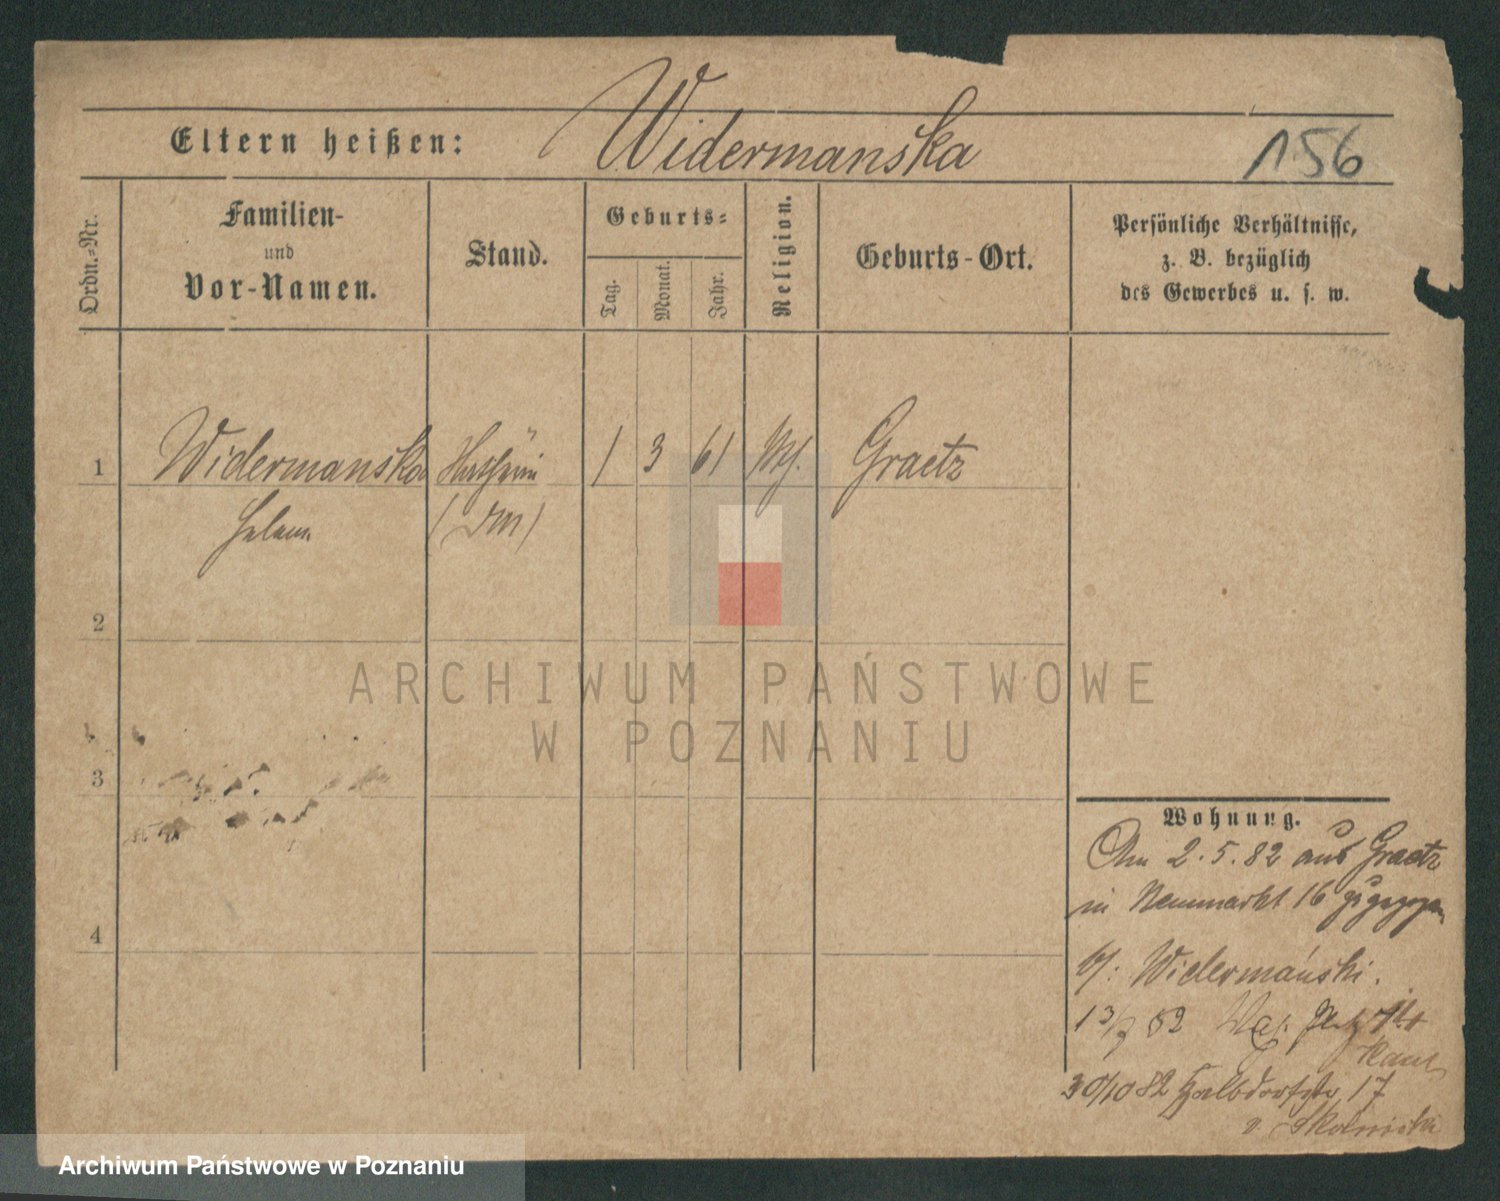 Eltern heißen: Widermanska 156
Ordn.-Nr.
Familien-
und
Vor-Namen.
Stand.
Geburts-
Tag.
Monat.
Jahr.
Religion.
Geburts-Ort.
Persönliche Verhältnisse,
z. B. bezüglich
des Gewerbes u. s. w.
1 Widermanska 1 3 61 Graetz
2
3
4
ARCHIWUM PAŃSTWOWE
W POZNANIU
Wohnung.
Am 2.5.82 aus Graetz
in Neumarkt 16 zugezogen
b/: Widermański.
13/9 82
30/10 82 Halbdorfstr 17
Archiwum Państwowe w Poznaniu